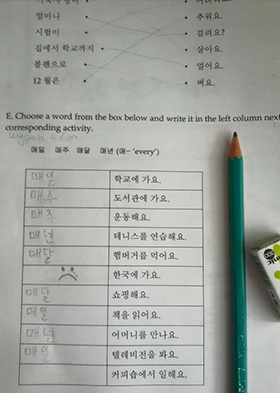 얼마나 추워요.
시험이 걸려요?
집에서 학교까지 살아요.
볼펜으로 멀어요.
12 월은 써요.
E. Choose a word from the box below and write it in the left column next
corresponding activity.
매일 매주 매달 매년 (매– ‘every’)
매일 학교에 가요.
매주 도서관에 가요.
매주 운동해요.
매년 테니스를 연습해요.
매달 햄버거를 먹어요.
한국에 가요.
매달 쇼핑해요.
매일 책을 읽어요.
매년 어머니를 만나요.
매일 텔레비전을 봐요.
커피숍에서 일해요.